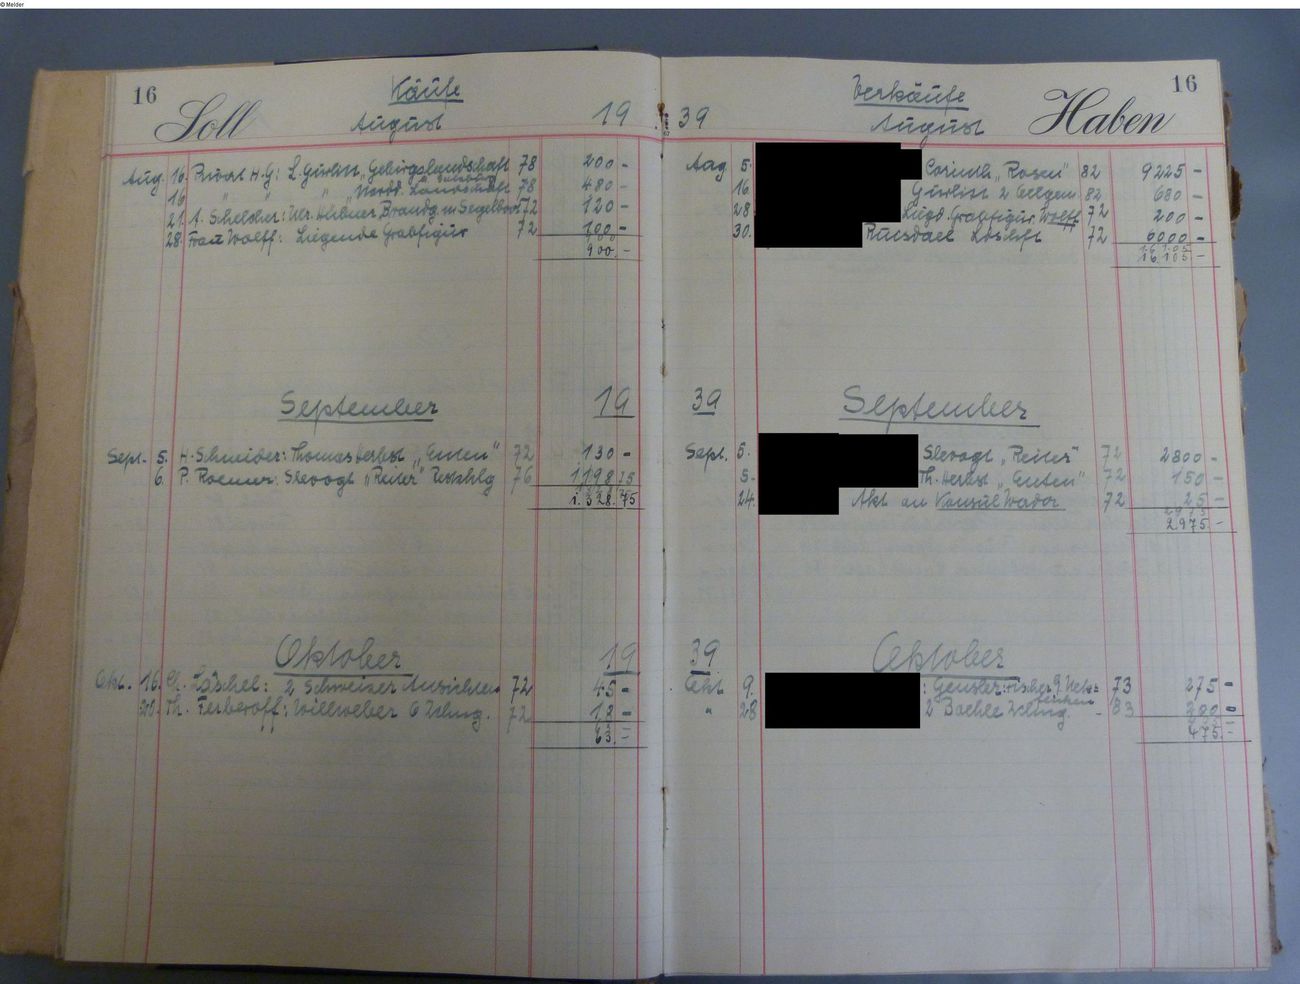 © Melder
16 Käufe
Soll August 19
Aug. 16. Privat H.G: L. Gurlitt, Gebirgslandschaft 78 200 -
16 " " " Nordd. Landschaft 78 480 -
21. A. Schelcher: Ulr. Hübner, Brandg. m Segelboot 72 120 -
28. Frau Wolff: Liegende Grabfigur 72 100 -
900.-
September 19
Sept. 5. H. Schneider: Thomas Herbst „Enten" 72 130 -
6. P. Roemer: Slevogt „Reiter" 76 1198 75
1.328.75
Oktober 19
Okt. 16. Ch. Läschel: 2 Schweizer Ansichten 72 45 -
20. Th. Ferberoff: Willweber 6 Zchng. 72 18 -
63.-
Verkäufe 16
39 August Haben
Aug 5. Corinth „Rosen" 82 9225 -
16 Gurlitt 2 Oelgem. 82 680 -
28 Liegd. Grabfigur Wolff 72 200 -
30. Ruisdael Ldschft 72 6000 -
16 105
16.105 -
39 September
Sept. 5. Slevogt „Reiter" 72 2800 -
5. Th. Herbst „Enten" 72 150 -
24. Akt an Konsul 72 25 -
2975
2975.-
39 Oktober
Okt 9. : Gensler: Fischer 73 275 -
" 28 2 Zchng. - 83 200 -
475.-